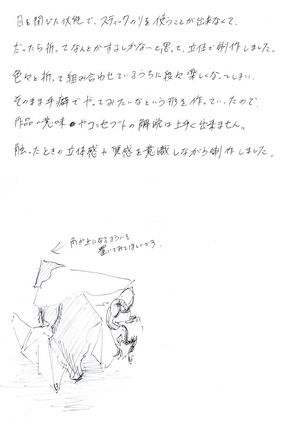 目を閉じた状態で、スティックのりを使うことが出来なくて、
だったら折ってなんとかするしかないと思って、立体で制作しました。
色々と折って組み合わせているうちに段々楽しくなってしまい、
そのまま手癖でやってみたいなという形を作っていったので、
作品の意味やコンセプトの解説は上手く出来ません。
触ったときの立体感や質感を意識しながら制作しました。
← 角が上になるように
置いてあてほしいです。